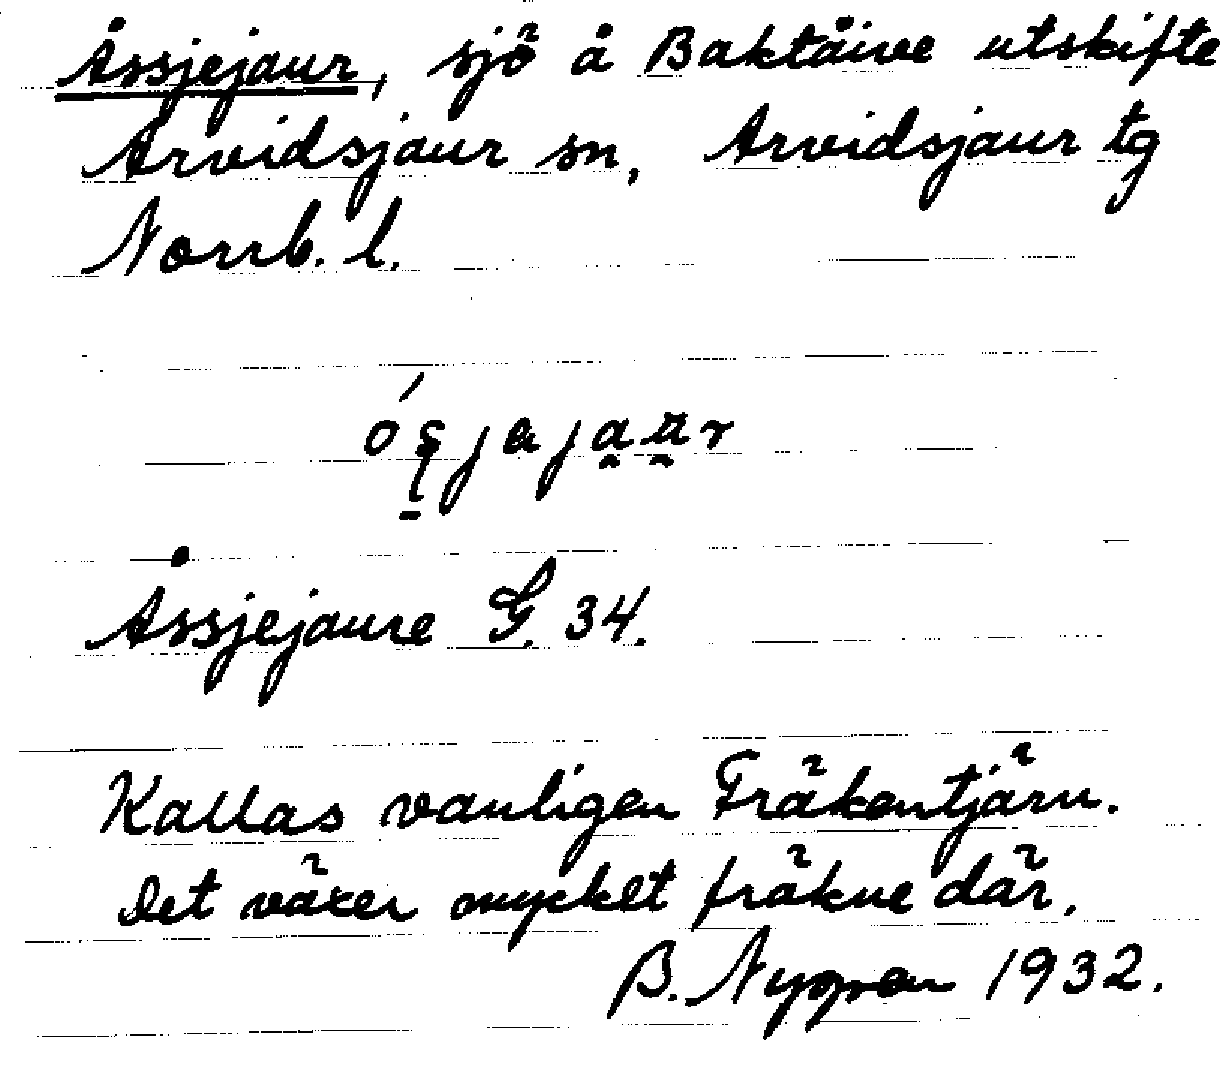 Åssjejaur, sjö å Baktåive utskifte
Arvidsjaur sn, Arvidsjaur tg
Norrb. l.
Åssjejaure G. 34.
Kallas vanligen Fräkentjärn.
Det växer mycket fräkne där.
B. Nygren 1932.